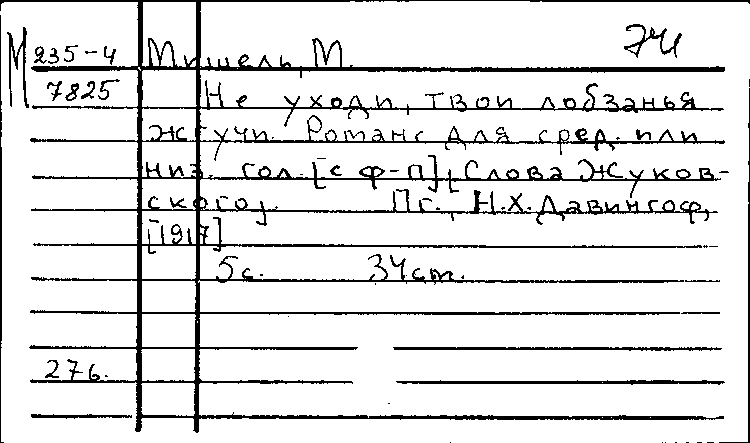 М 235-4 Мишель, М.
7825 Не уходи, твои лобзанья
жгучи. Романс для сред. или
низ. гол. [с ф-п], Слова Жуков-
ского]. Пг., Н.Х. Давингоф,
[1917]
5с. 34ст.
276.